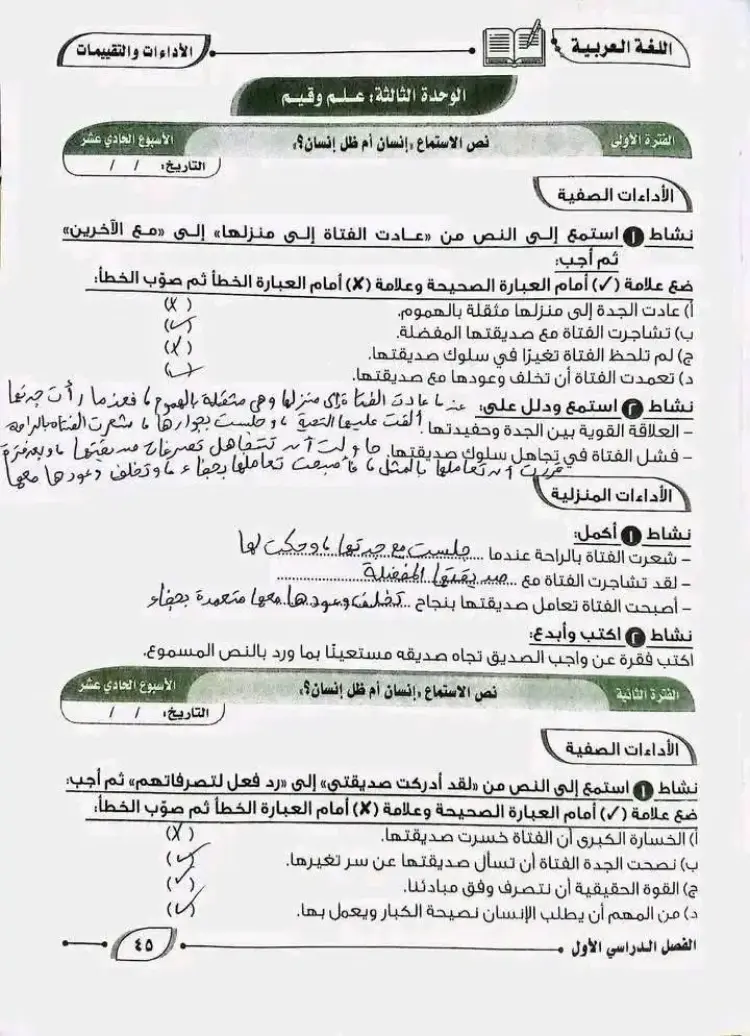 اللغة العربية
الأداءات والتقييمات
الوحدة الثالثة: علم وقيم
الفترة الأولى
نص الاستماع «إنسان أم ظل إنسان؟»
الأسبوع الحادي عشر
التاريخ: / /
الأداءات الصفية
نشاط ١ استمع إلى النص من «عادت الفتاة إلى منزلها» إلى «مع الآخرين»
ثم أجب:
ضع علامة (✓) أمام العبارة الصحيحة وعلامة (✗) أمام العبارة الخطأ ثم صوّب الخطأ:
أ) عادت الجدة إلى منزلها مثقلة بالهموم. (✗)
ب) تشاجرت الفتاة مع صديقتها المفضلة. (✓)
ج) لم تلحظ الفتاة تغيرًا في سلوك صديقتها. (✗)
د) تعمدت الفتاة أن تخلف وعودها مع صديقتها. (✓)
نشاط ٢ استمع ودلل على: عندما عادت الفتاة إلى منزلها وهي مثقلة بالهموم، فعندما رأت جدتها
– العلاقة القوية بين الجدة وحفيدتها. ألقت عليها التحية، وجلست بجوارها، شعرت الفتاة بالراحة
– فشل الفتاة في تجاهل سلوك صديقتها. حاولت أن تتجاهل تصرفات صديقتها، وبعد فترة
قررت أن تعاملها بالمثل، فأصبحت تعاملها بجفاء، وتخلف وعودها معها
الأداءات المنزلية
نشاط ١ أكمل:
– شعرت الفتاة بالراحة عندما جلست مع جدتها، وحكت لها
– لقد تشاجرت الفتاة مع صديقتها المفضلة
– أصبحت الفتاة تعامل صديقتها بنجاح تخلف وعودها معها متعمدة بجفاء
نشاط ٢ اكتب وأبدع:
اكتب فقرة عن واجب الصديق تجاه صديقه مستعينًا بما ورد بالنص المسموع.
الفترة الثانية
نص الاستماع «إنسان أم ظل إنسان؟»
الأسبوع الحادي عشر
التاريخ: / /
الأداءات الصفية
نشاط ١ استمع إلى النص من «لقد أدركت صديقتي» إلى «رد فعل لتصرفاتهم» ثم أجب:
ضع علامة (✓) أمام العبارة الصحيحة وعلامة (✗) أمام العبارة الخطأ ثم صوّب الخطأ:
أ) الخسارة الكبرى أن الفتاة خسرت صديقتها. (✗)
ب) نصحت الجدة الفتاة أن تسأل صديقتها عن سر تغيرها. (✓)
ج) القوة الحقيقية أن نتصرف وفق مبادئنا. (✓)
د) من المهم أن يطلب الإنسان نصيحة الكبار ويعمل بها. (✓)
الفصل الدراسي الأول
٤٥